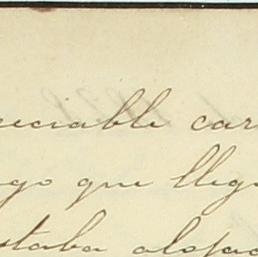 reciable car
ego que lleg
staba alojad